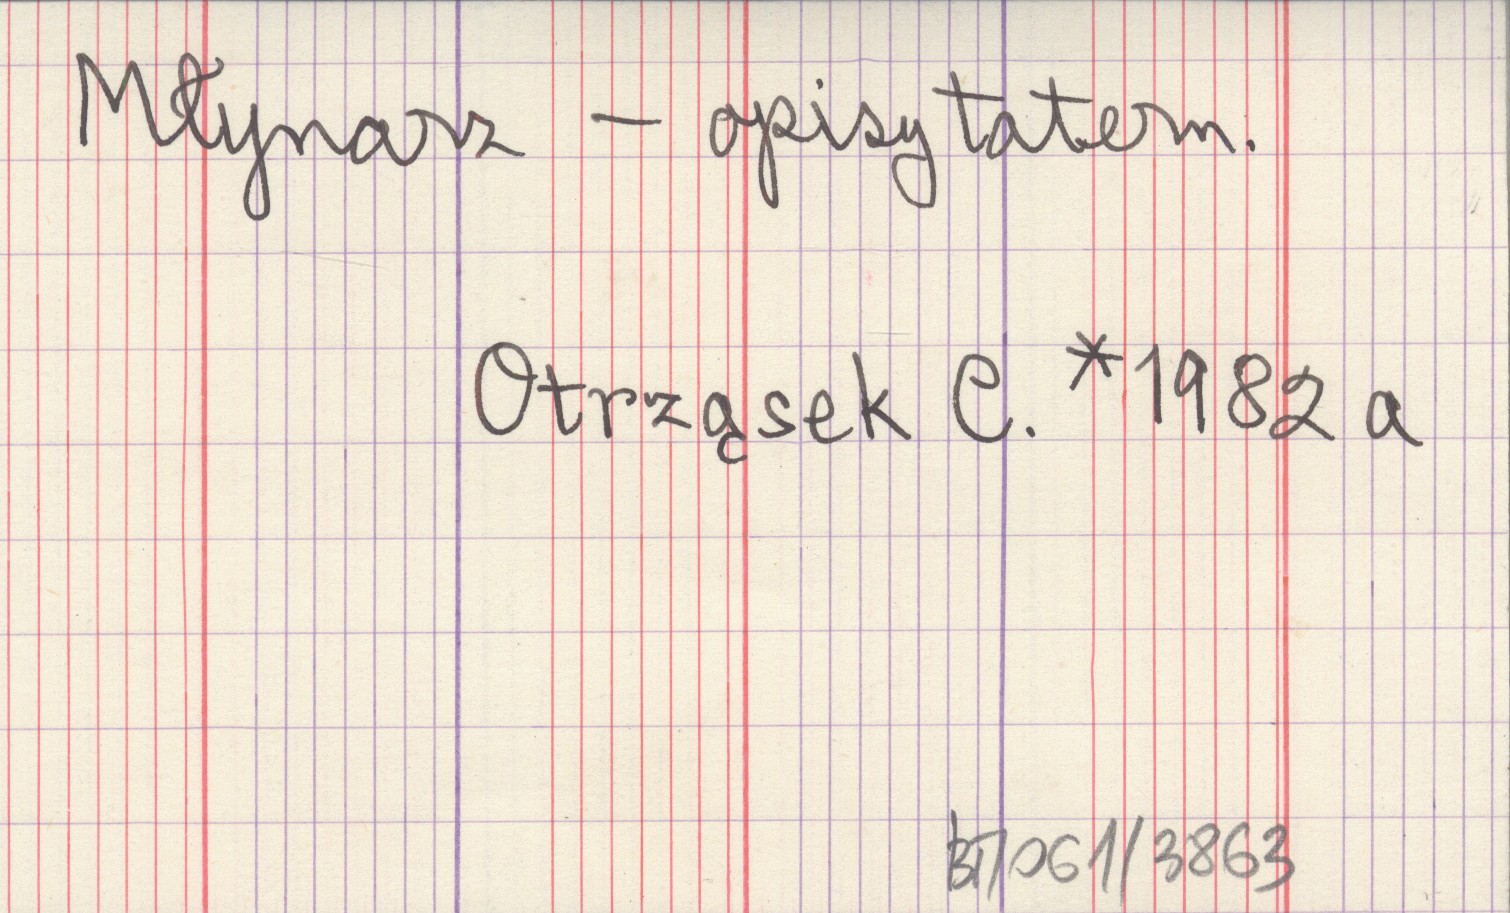 Młynarz – opisy tatern.
Otrząsek C. *1982 a
BT/061/3863